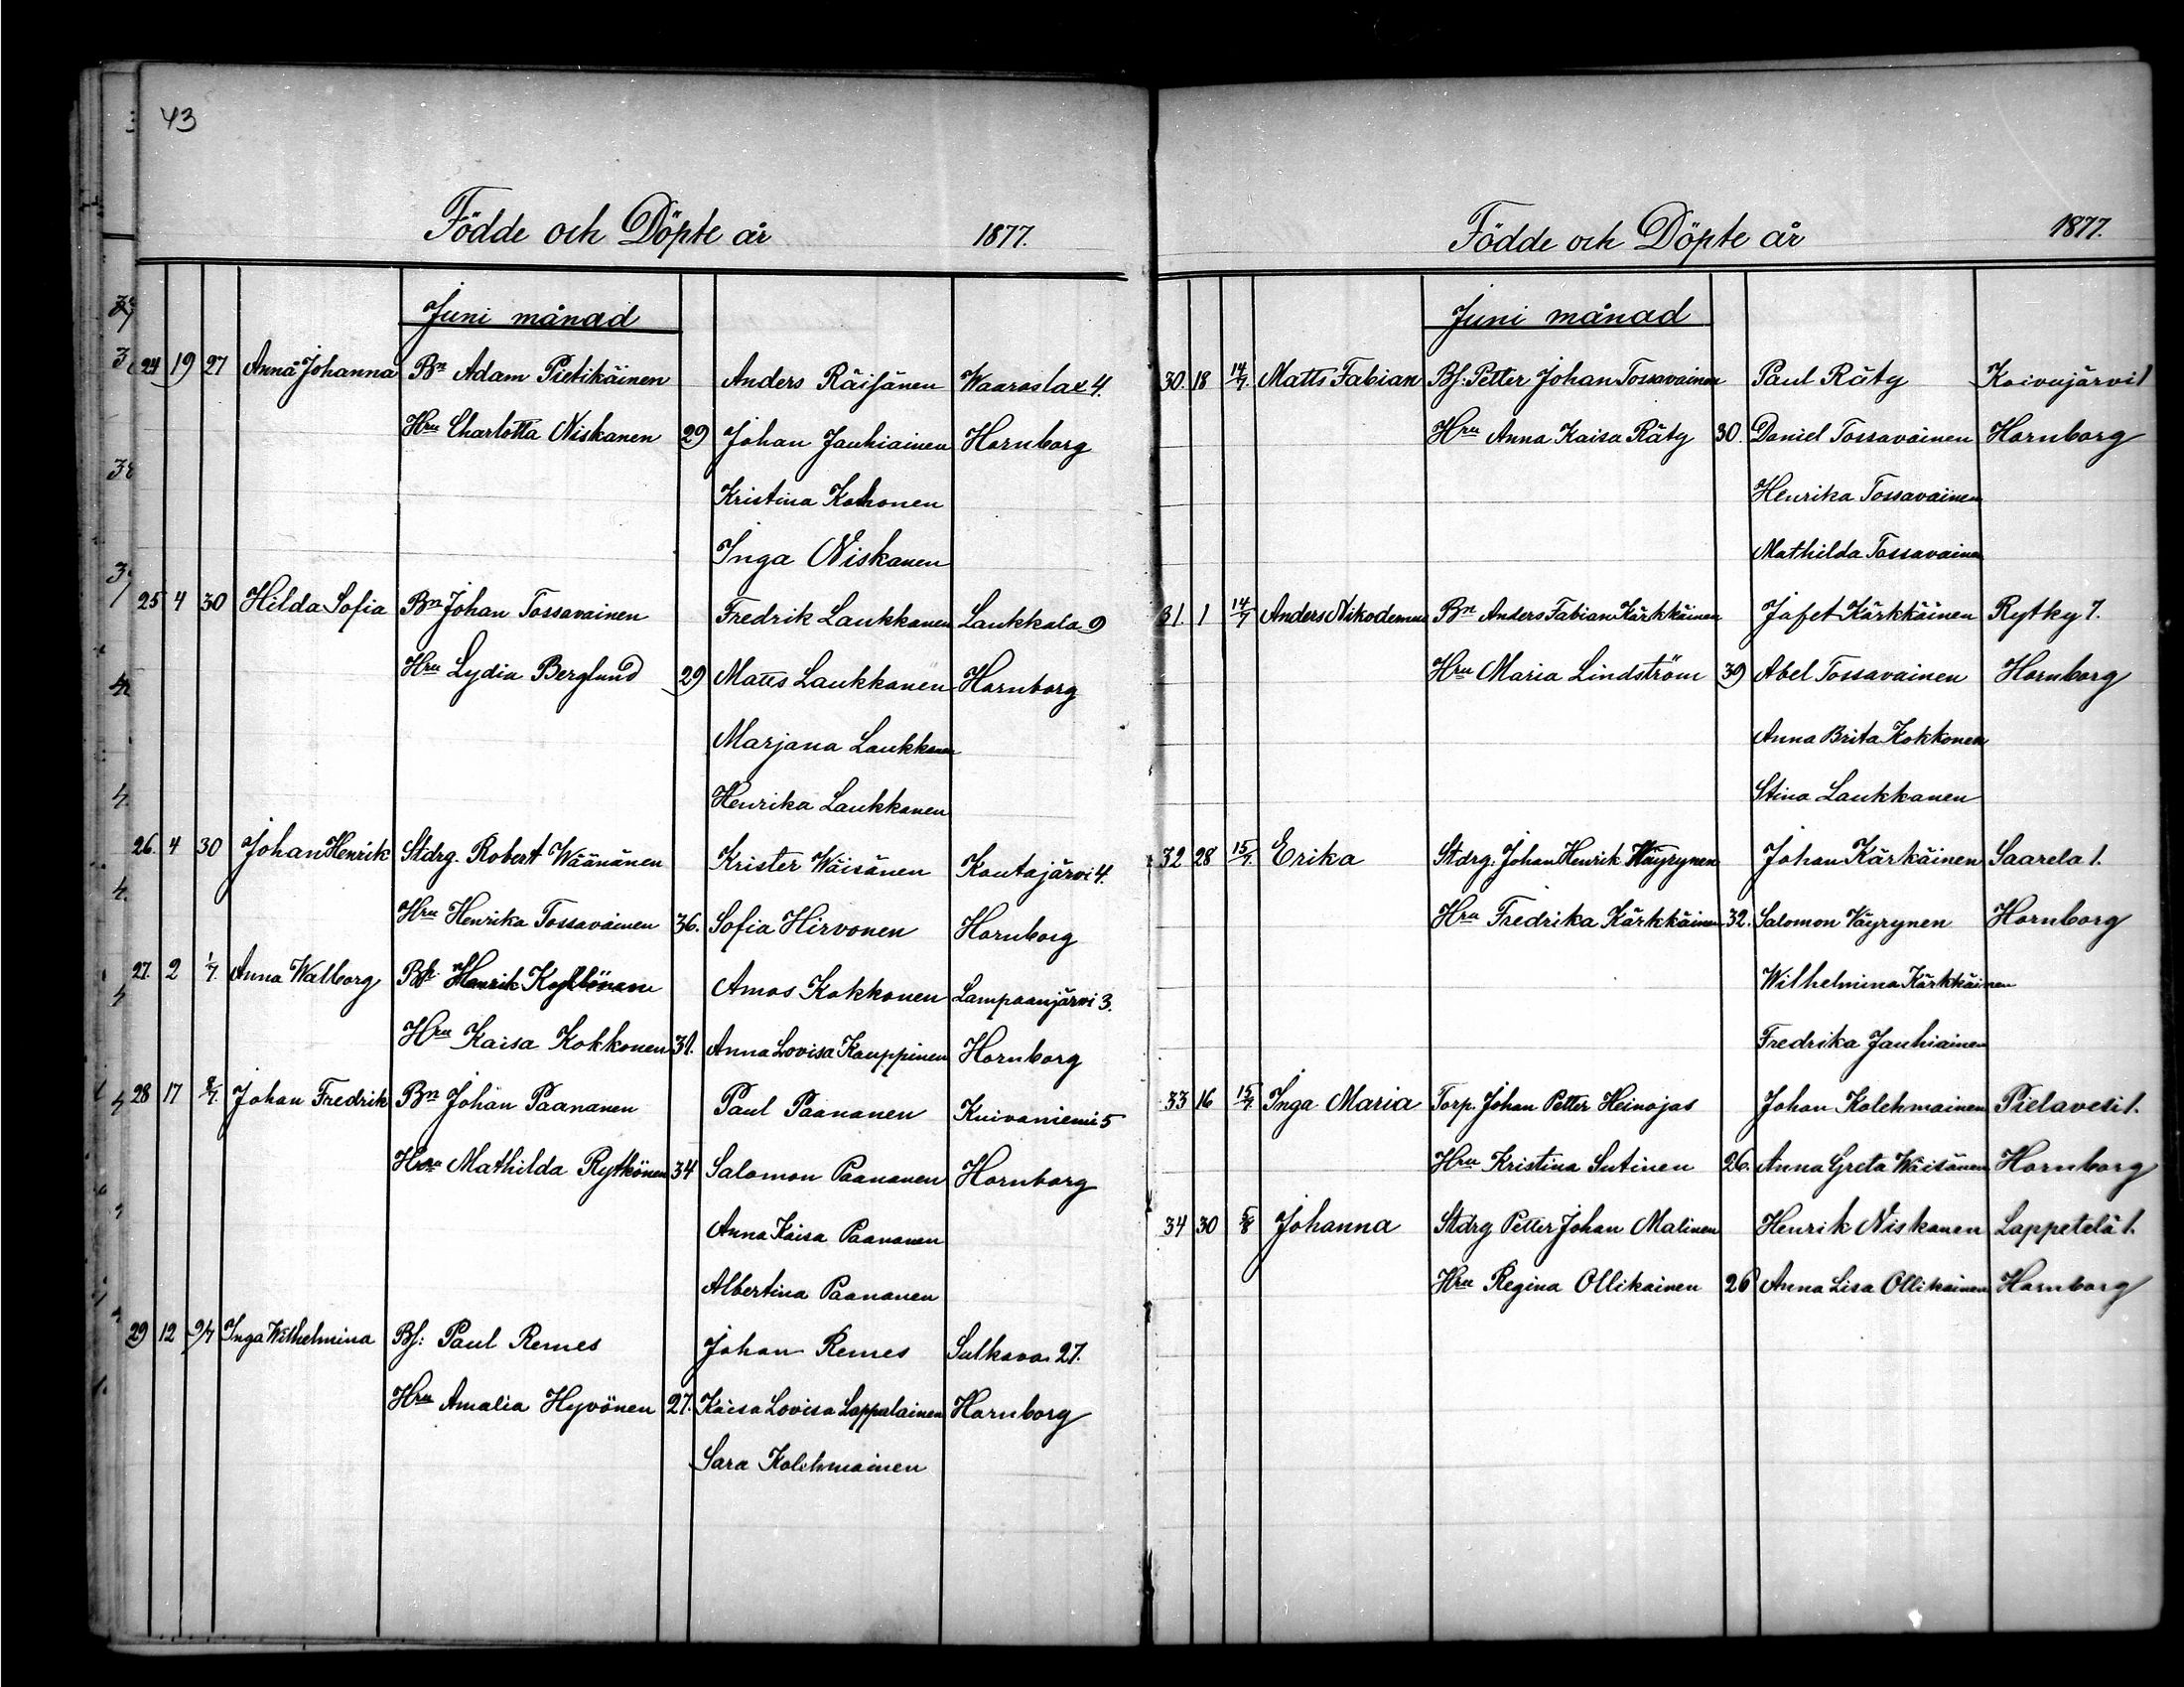 43
Födde och Döpte år 1877.
Juni månad
24 19 27 Anna Johanna Bn Adam Pietikäinen Anders Räisänen Waaraslax 4.
Hru Charlotta Niskanen 29 Johan Jauhiainen Hornborg
Kristina Kohonen
Inga Niskanen
25 4 30 Hilda Sofia Bn Johan Tossavainen Fredrik Laukkanen Laukkala 9
Hru Lydia Berglund 29 Matts Laukkanen Hornborg
Marjana Laukkanen
Henrika Laukkanen
26. 4 30 Johan Henrik Stdrg. Robert Wäänänen Krister Wäisänen Koutajärvi 4.
Hru Henrika Tossavainen 36. Sofia Hirvonen Hornborg
27. 2 1/7. Anna Walborg Henrik Amos Kokkonen Lampaanjärvi 3.
Hru Kaisa Kokkonen 31. Anna Lovisa Kauppinen Hornborg
28 17 8/7. Johan Fredrik Bn Johan Paananen Paul Paananen Kuivaniemi 5
Hru Mathilda Rytkönen 34 Salomon Paananen Hornborg
Anna Kaisa Paananen
Albertina Paananen
29 12 9/7 Inga Wilhelmina Bf: Paul Remes Johan Remes Sulkava 27.
Hru Amalia Hyvönen 27. Kaisa Lovisa Lappalainen Hornborg
Sara Kolehmainen
Födde och Döpte år 1877.
Juni månad
30. 18 14/7. Matts Fabian Bf: Petter Johan Tossavainen Paul Räty Koivujärvi 1
Hru Anna Kaisa Räty 30. Daniel Tossavainen Hornborg
Henrika Tossavainen
Mathilda Tossavainen
31. 1 14/7 Anders Nikodemus Bn Anders Fabian Kärkkäinen Jafet Kärkkäinen Rytky 7.
Hru Maria Lindström 39 Abel Tossavainen Hornborg
Anna Brita Kokkonen
Stina Laukkanen
32 28 15/7. Erika Stdrg: Johan Henrik Wäyrynen Johan Kärkäinen Saarela 1.
Hru Fredrika Kärkkäinen 32. Salomon Väyrynen Hornborg
Wilhelmina Kärkkäinen
Fredrika Jauhiainen
33 16 15/7 Inga Maria Torp. Johan Petter Heinojas Johan Kolehmainen Pielavesi 1.
Hru Kristina Sutinen 26. Anna Greta Wäisänen Hornborg
34 30 5/8 Johanna Stdrg Petter Johan Malinen Henrik Niskanen Lappetelä 1.
Hru Regina Ollikainen 26 Anna Lisa Ollikainen Hornborg